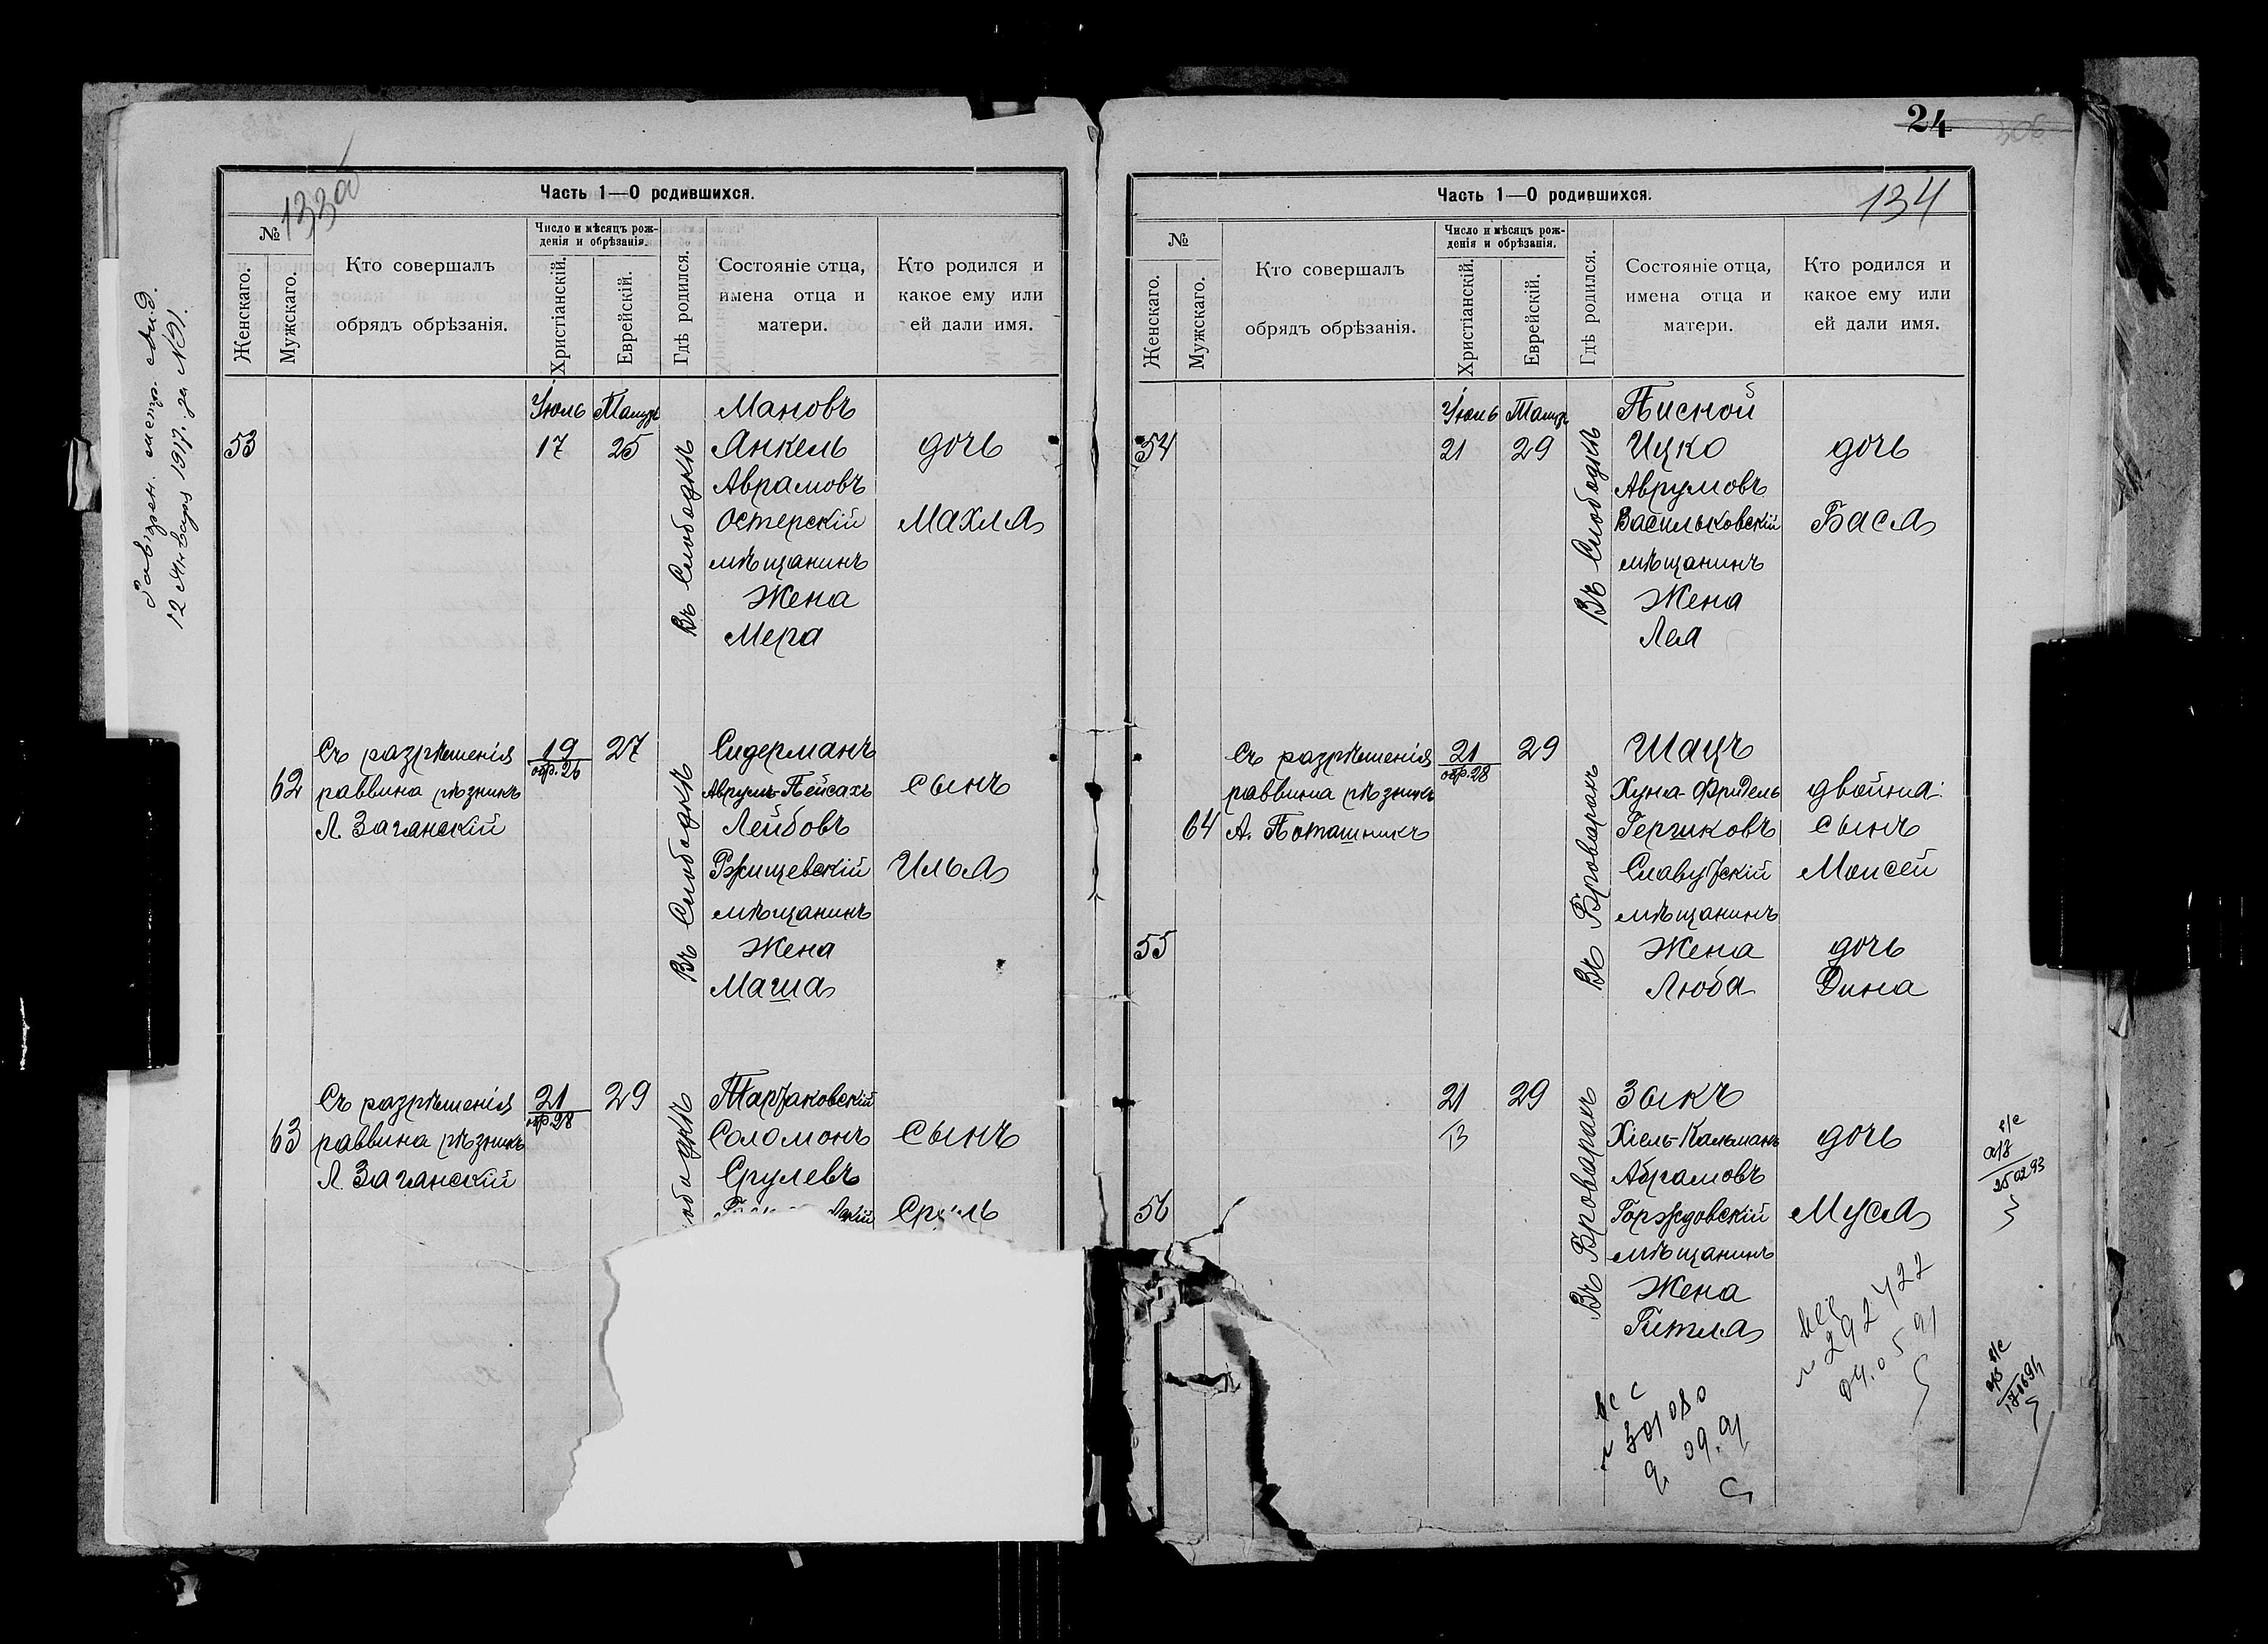 133об
Завѣрен.
12 Января 1917 г. за № 91.
Часть 1—О родившихся.
№
Женскаго.
Мужскаго.
Кто совершалъ
обрядъ обрѣзанія.
Число и мѣсяцъ рож-
денія и обрѣзанія.
Христіанскій.
Еврейскій.
Гдѣ родился.
Состояніе отца,
имена отца и
матери.
Кто родился и
какое ему или
ей дали имя.
Іюль Тамузъ Мановъ
53 17 25 Въ Слободкѣ Янкель дочь
Аврамовъ
Остерскій Махля
мѣщанинъ
Жена
Мера
Съ разрѣшенія 19 27 Сидерманъ
обр. 26
62 раввина рѣзникъ Въ Слободкѣ Аврумъ-Пейсахъ сынъ
Л. Заганскій Лейбовъ
Ржищевскій Илья
мѣщанинъ
Жена
Маша
Съ разрѣшенія 21 29 Тартаковскій
обр. 28
63 раввина рѣзникъ ободкѣ Соломонъ сынъ
Л. Заганскій Срулевъ
скій Сруль
24
134
Часть 1—О родившихся.
№
Женскаго.
Мужскаго.
Кто совершалъ
обрядъ обрѣзанія.
Число и мѣсяцъ рож-
денія и обрѣзанія.
Христіанскій.
Еврейскій.
Гдѣ родился.
Состояніе отца,
имена отца и
матери.
Кто родился и
какое ему или
ей дали имя.
Іюль Тамузъ Писной
54 21 29 Въ Слободкѣ Ицко дочь
Аврумовъ
Васильковскій Бася
мѣщанинъ
Жена
Лея
Съ разрѣшенія 21 29 Шацъ
обр. 28
раввина рѣзникъ Въ Броварахъ Хуна-Фридель двойня:
64 А. Поташникъ Гершковъ сынъ
Славутскій Моисей
мѣщанинъ
55 Жена дочь
Люба Дина
21 29 Зыкъ
13 Въ Броварахъ Хіель-Кальманъ дочь
Абрамовъ
56 Горждовскій Муся
мѣщанинъ
Жена
Гитля
292422
04.05 91
301080
09.91
250293